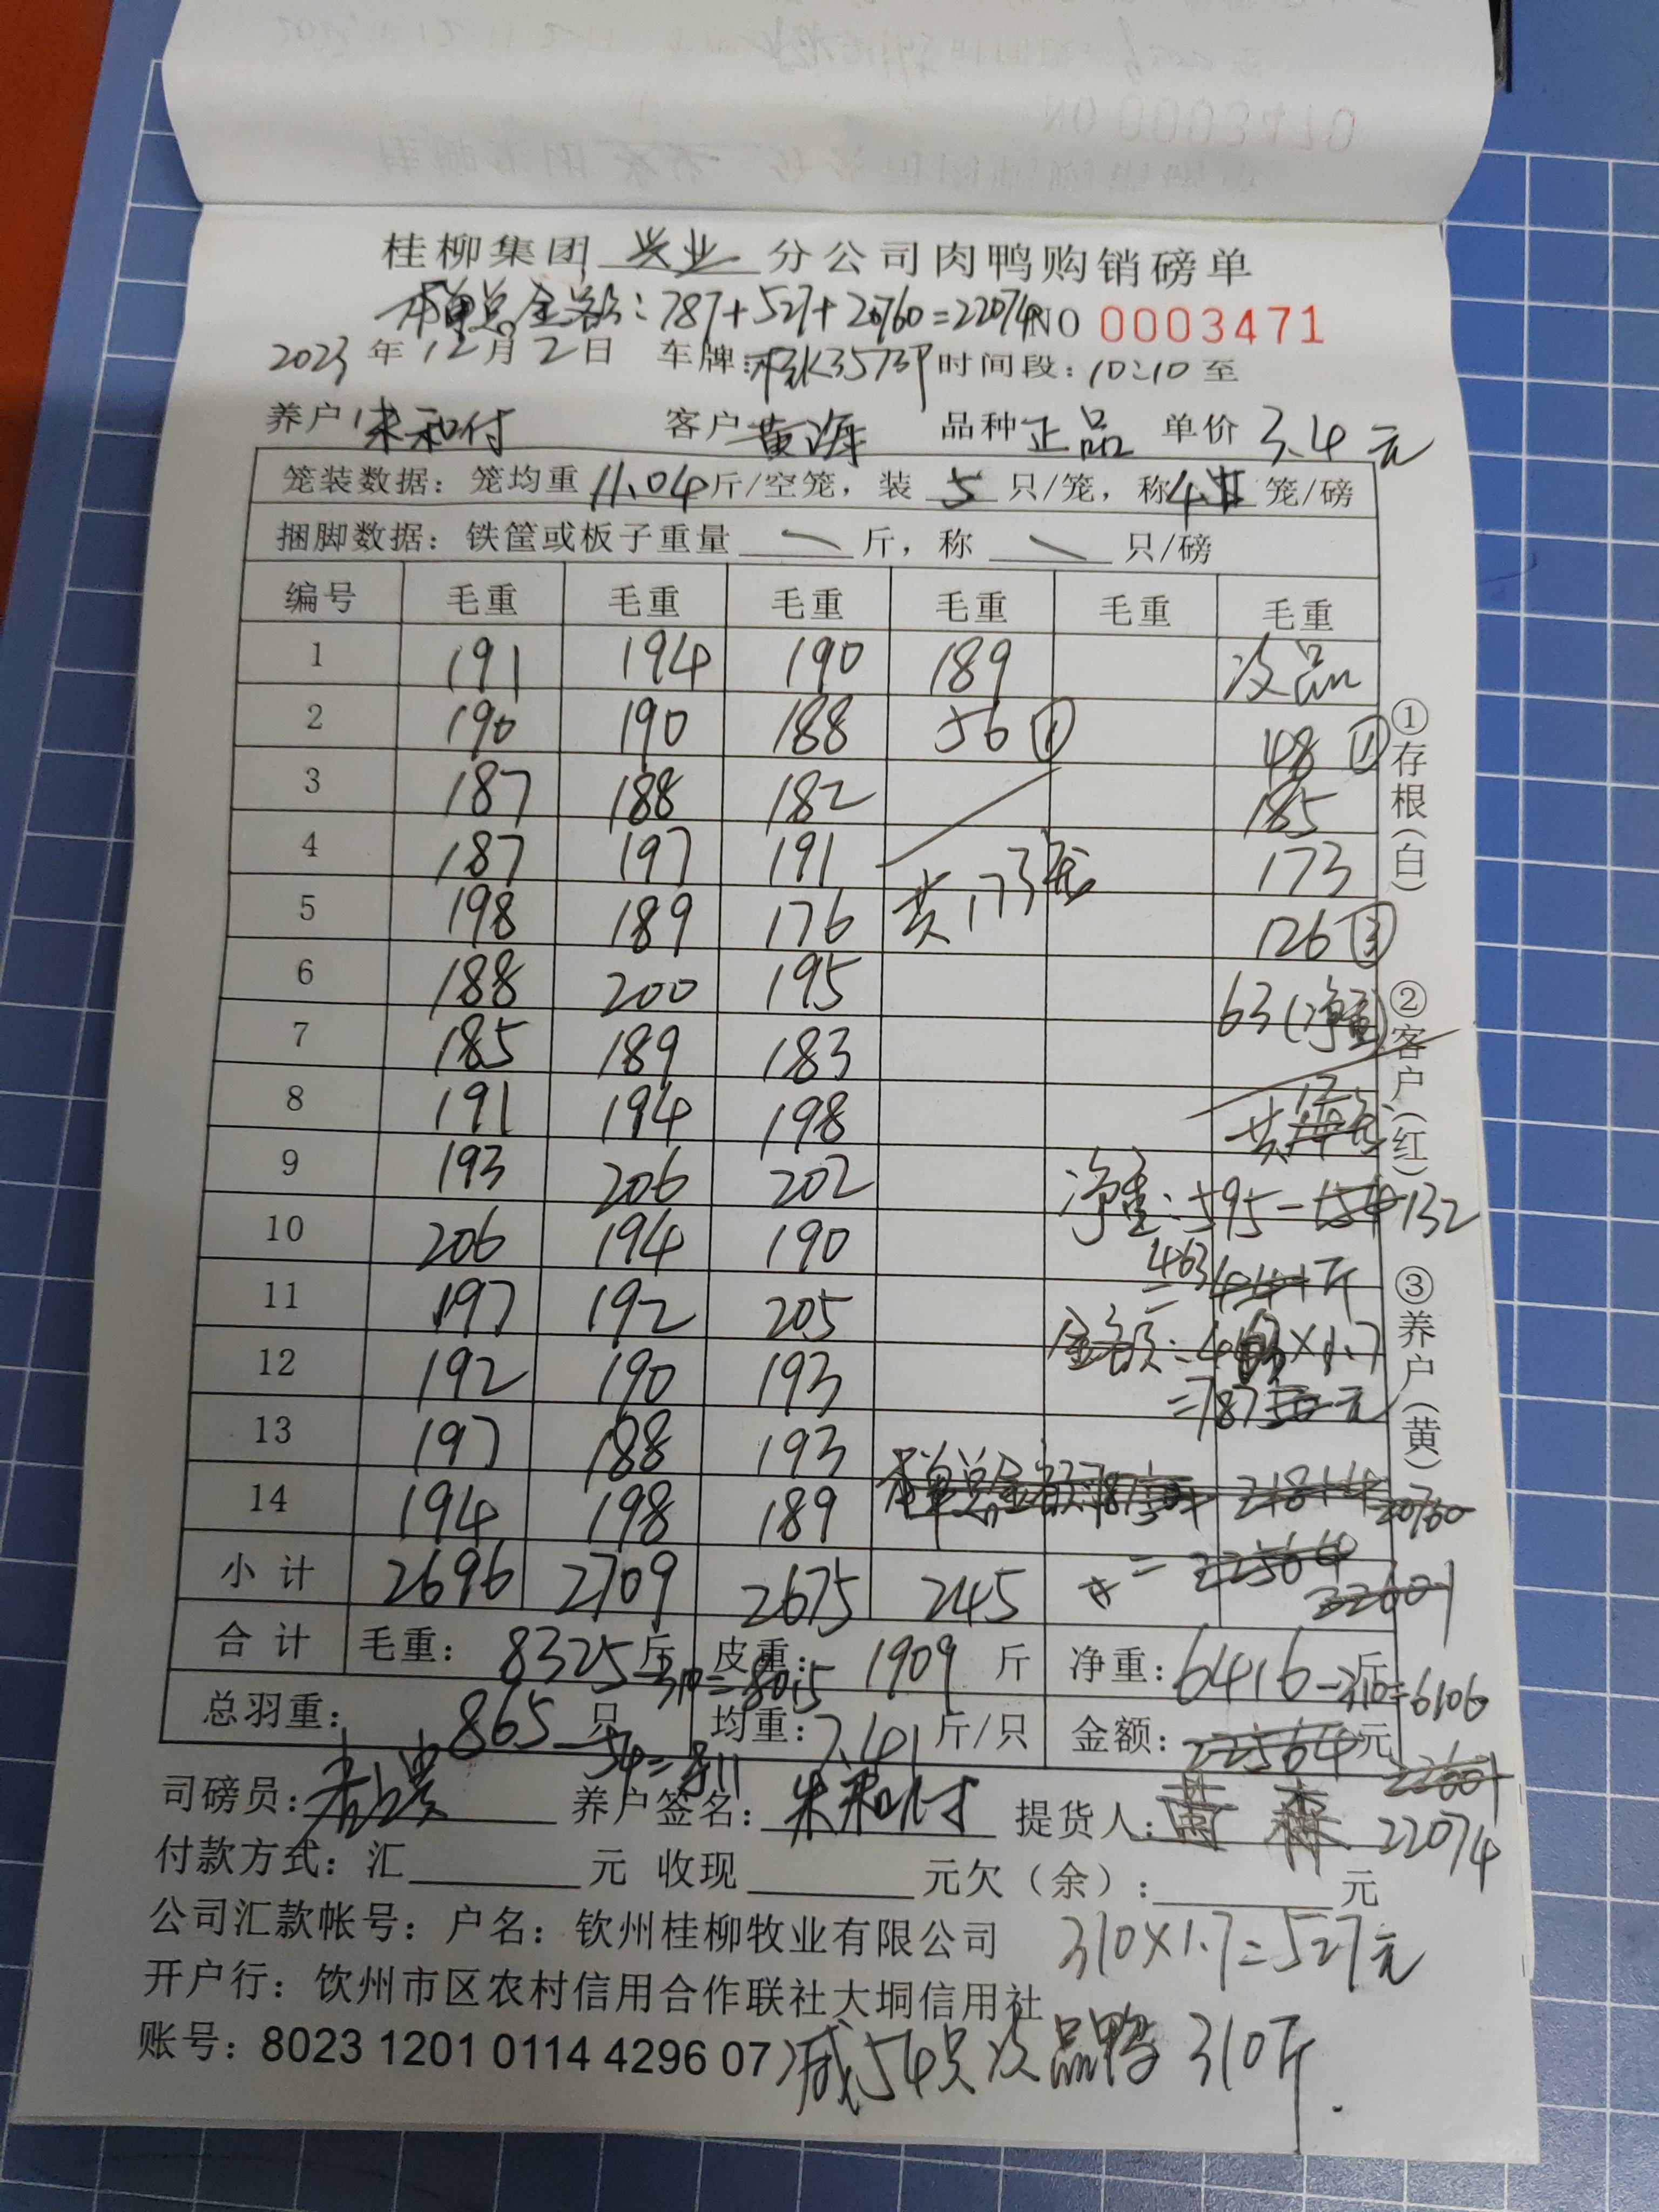 桂柳集团兴业分公司肉鸭购销磅单
本单总金额:787+527+20760=22074
NO 0003471
2023年12月2日 车牌:桂K3573P 时间段:10:10至
养户 朱和付 客户 黄海 品种 正品 单价 3.4元
笼装数据:笼均重11.04斤/空笼,装5只/笼,称4笼/磅
捆脚数据:铁筐或板子重量 斤,称 只/磅
编号 毛重 毛重 毛重 毛重 毛重 毛重
1 191 194 190 189 次品
2 190 190 188 56① 48①
3 187 188 182 185
4 187 197 191 173
5 198 189 176 共173笼 126③
6 188 200 195 63(净重)
7 185 189 183
8 191 194 198 共12笼
9 193 206 202 净重:595-154 132
10 206 194 190 =463 441斤
11 197 192 205 金额:463×1.7
12 192 190 193 =787元
13 197 188 193
14 194 198 189 本单总金额:787+21814 20760
小计 2696 2709 2675 245 =22564 22601
合计 毛重:8325斤-310=8015 皮重:1909斤 净重:6416斤-310=6106
总羽重:865只-54=811 均重:7.41斤/只 金额:22564元 22601
司磅员: 养户签名:朱和付 提货人:黄森 22074
付款方式:汇 元 收现 元欠(余): 元
公司汇款帐号:户名:钦州桂柳牧业有限公司 310×1.7=527元
开户行:饮州市区农村信用合作联社大垌信用社
账号:8023 1201 0114 4296 07 减54只次品鸭310斤.
①存根(白) ②客户(红) ③养户(黄)